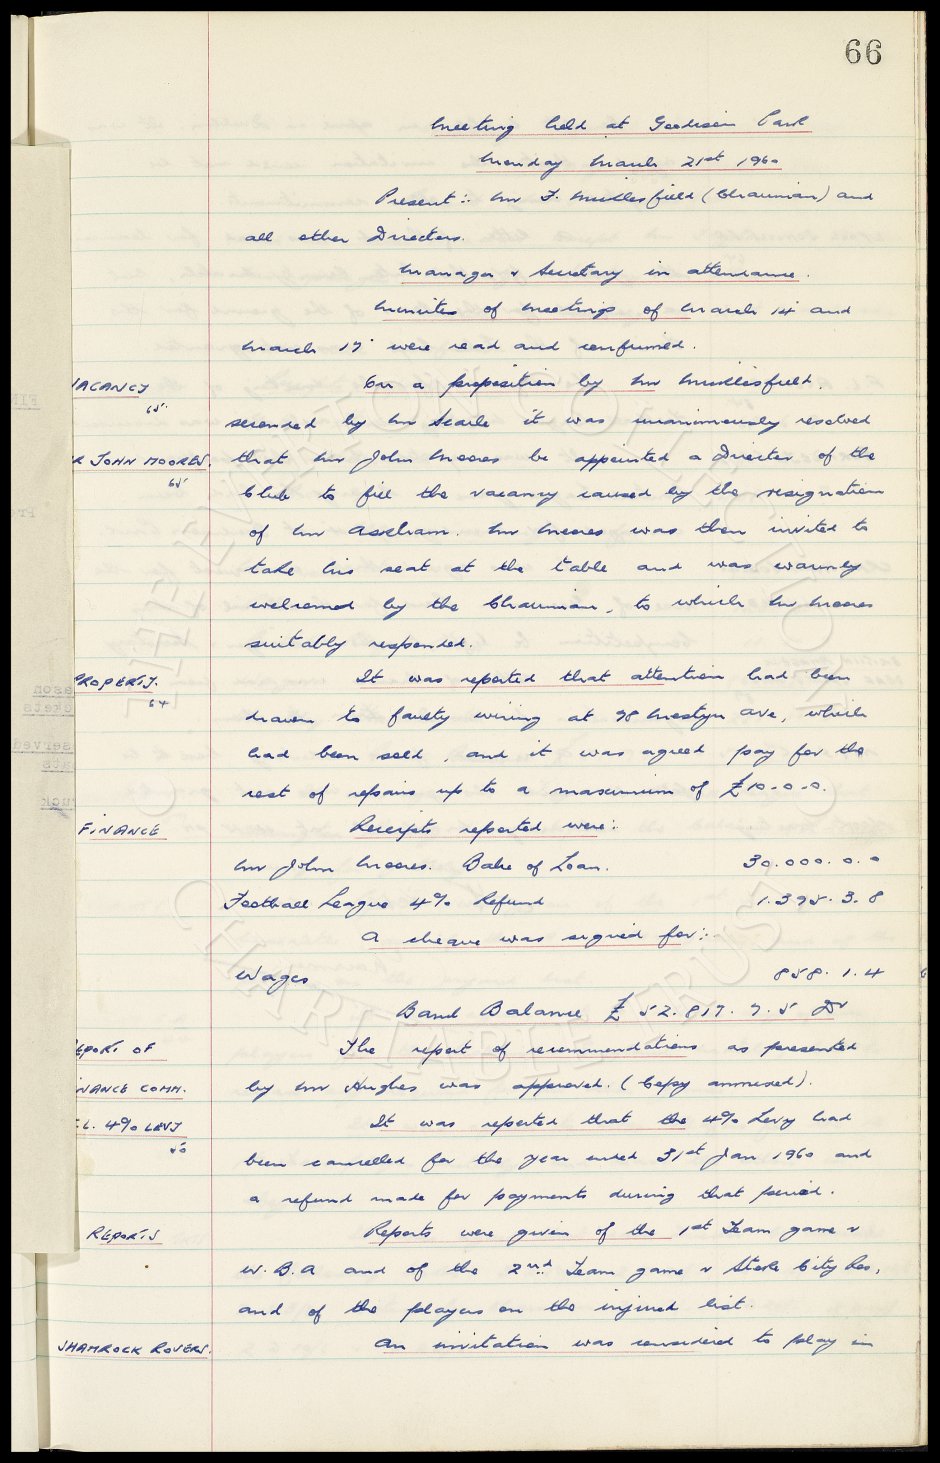 66
Meeting held at Goodison Park
Monday March 21st 1960
Present:- Mr F. Micklesfield (Chairman) and
all other Directors.
Manager & Secretary in attendance.
Minutes of meetings of March 14 and
March 17 were read and confirmed.
VACANCY
65
On a proposition by Mr Micklesfield,
seconded by Mr Searle it was unanimously resolved
R JOHN MOORES.
65
that Mr John Moores be appointed a Director of the
Club to fill the vacancy caused by the resignation
of Mr Askham. Mr Moores was then invited to
take his seat at the table and was warmly
welcomed by the Chairman, to which Mr Moores
suitably responded.
PROPERTY.
64
It was reported that attention had been
drawn to faulty wiring at 98 Mostyn Ave, which
had been sold, and it was agreed pay for the
cost of repairs up to a maximum of £10-0-0.
FINANCE
Receipts reported were:-
Mr John Moores. Balce of Loan. 30.000.0.0
Football League 4% Refund 1.395.3.8
A cheque was signed for:-
Wages 858.1.4
Bank Balance £52.817.7.5 Dr
EPORT OF
The report of recommendations as presented
NANCE COMM.
by Mr Hughes was approved. (Copy annexed).
F.L. 4% LEVY
50
It was reported that the 4% Levy had
been cancelled for the year ended 31st Jan 1960 and
a refund made for payments during that period.
REPORTS
Reports were given of the 1st Team game v
W.B.A and of the 2nd Team game v Stoke City Res,
and of the players on the injured list.
SHAMROCK ROVERS.
An invitation was considered to play in